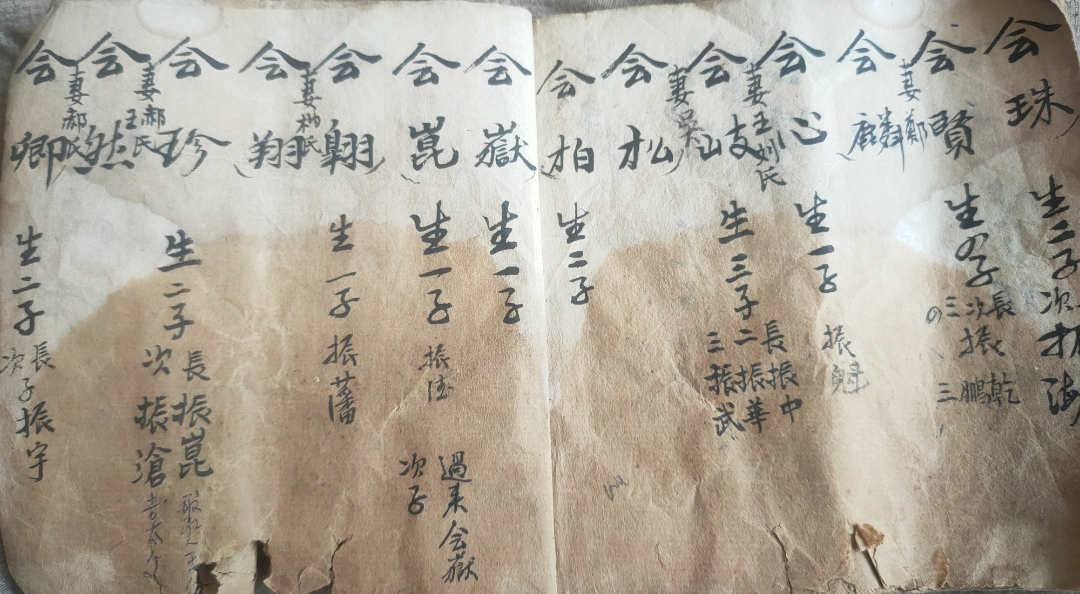 会珠
生二子次振海
会賢
妻鄭
生の子長振乾
次振鵬
三
の
会麟
会心
生一子振魁
妻王刘氏
会岐
妻吴
生三子長振中
二振華
三振武
会松
会柏
生二子
会嶽
生一子
会崑
生一子振
過来会嶽
次子
会翺
生一子振藩
妻氏
会翔
会珍
生二子長振崑
次振滄
妻郝
王氏
会然
妻郝氏
会卿
生二子長子振宇
次